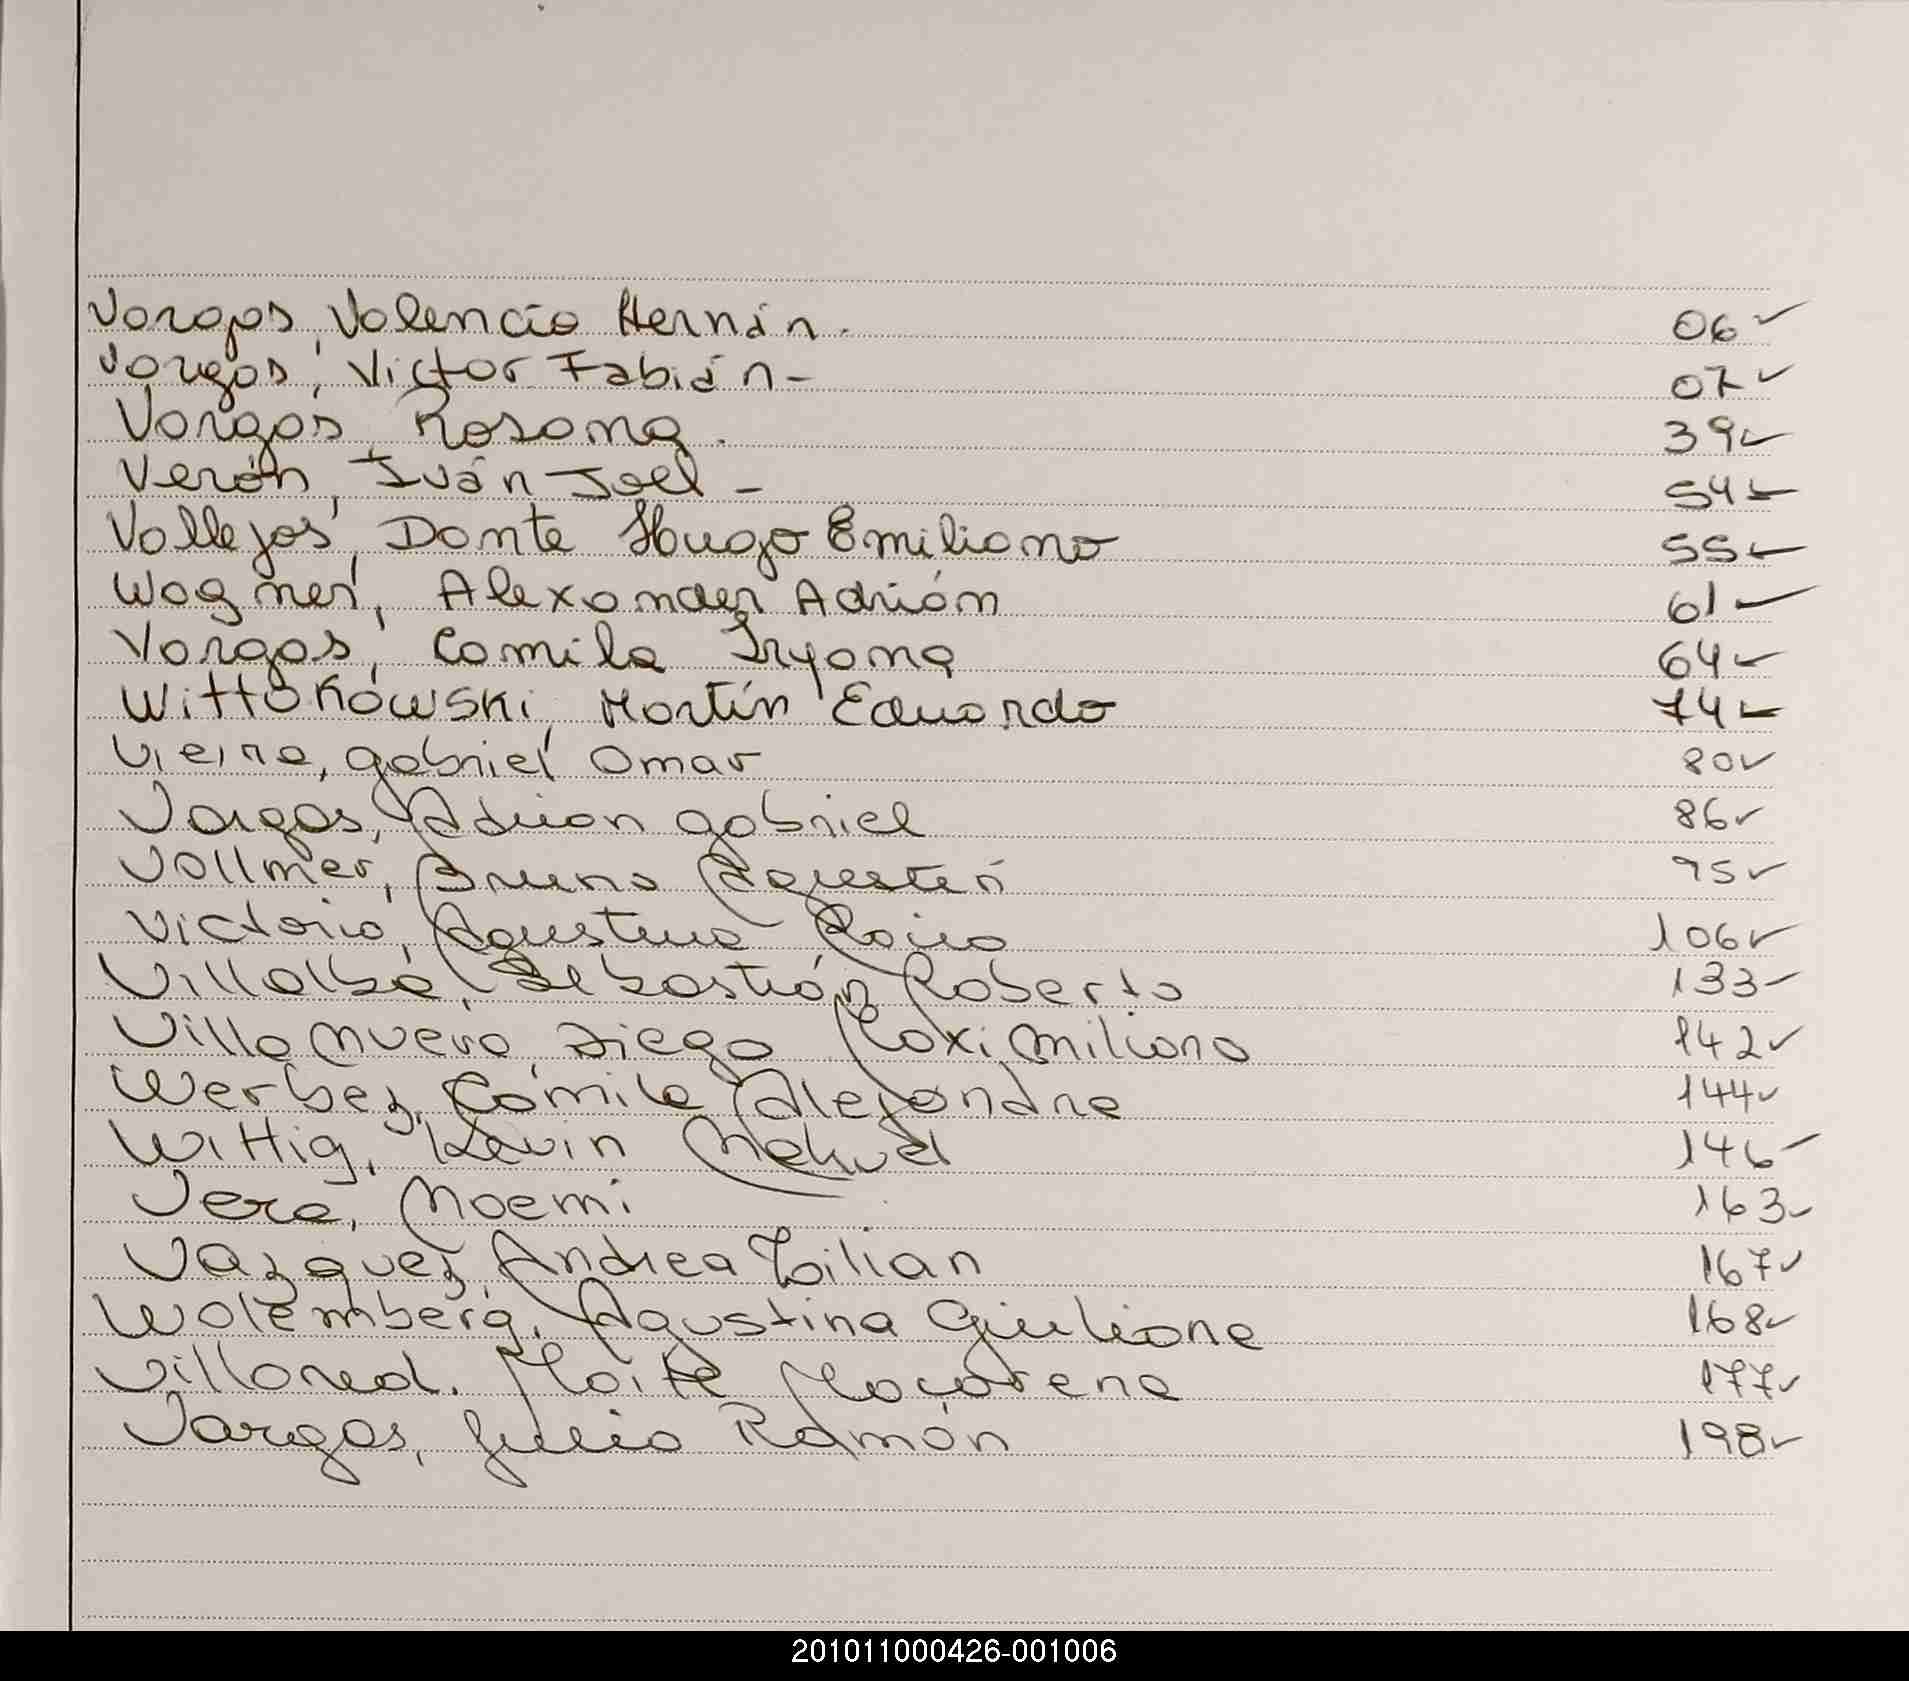 Vargas, Valencia Hernán. 06✓
Vargas, Victor Fabián- 07✓
Vargas, Rosana. 39✓
Verón, Iván Joel - 54✓
Vallejos, Dante Hugo Emiliano 55✓
Wagner, Alexander Adrián 61✓
Vargas, Camila Iryana 64✓
Wittokowski, Martín Eduardo 74✓
Vieira, Gabriel Omar 80✓
Vargas, Adrian Gabriel 86✓
Vollmer, Bruno Agustín 95✓
Victoria, Agustina 106✓
Villalba, Sebastián Roberto 133✓
Villanueva, Diego Maximiliano 142✓
Werbez, Camila Alejandra 144✓
Wittig, Kevin Nahuel 146✓
Vera, Noemi 163✓
Vazquez, Andrea Lilian 167✓
Walemberg, Agustina Giuliana 168✓
Villarreal. Maite Macarena 177✓
Vargas, Julio Ramón 198✓
201011000426-001006